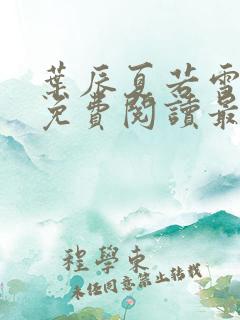 葉辰夏若雪
免費閱讀最
程學東
未经同意禁止转载